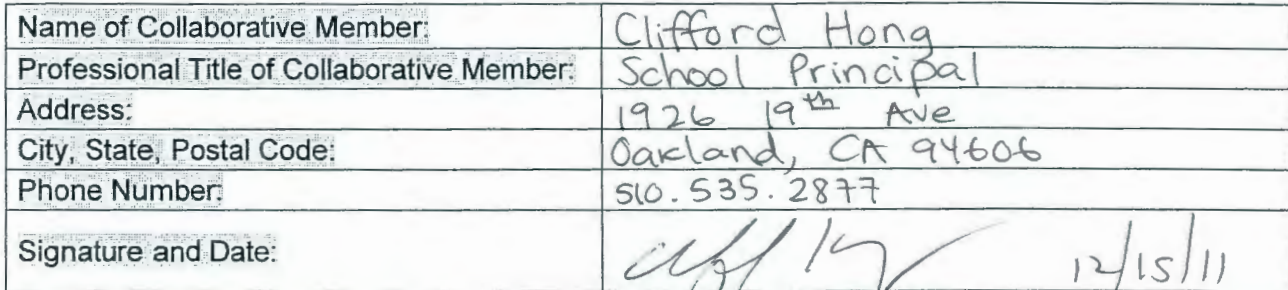 Name of Collaborative Member: Clifford Hong
Professional Title of Collaborative Member: School Principal
Address: 1926 19th Ave
City, State, Postal Code: Oakland, CA 94606
Phone Number: 510.535.2877
Signature and Date: 12/15/11